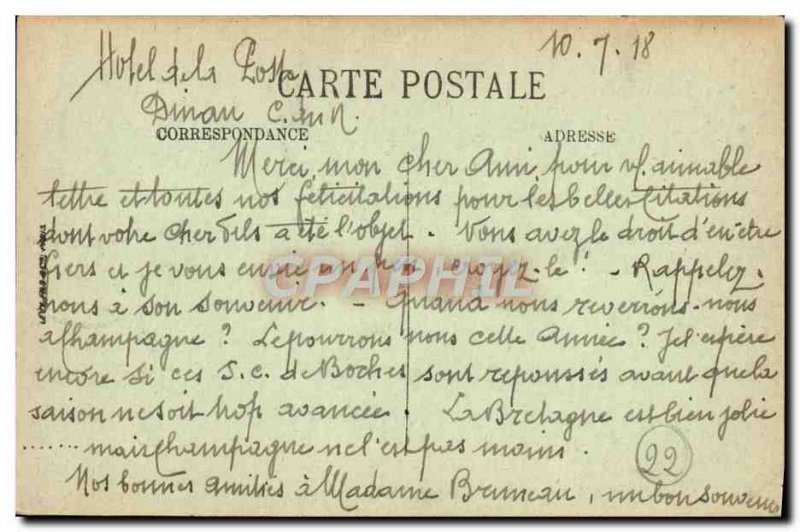 Hotel de la Poste 10.7.18
CARTE POSTALE
Dinan C. du N.
CORRESPONDANCE ADRESSE
Merci, mon cher Ami, pour vf. aimable
lettre et toutes nos félicitations pour les belles citations
dont votre cher fils a été l'objet. Vous avez le droit d'en être
fiers et je vous envie un peu croyez-le ! - Rappelez-
nous à son souvenir. - Quand nous reverrons-nous
à Champagne ? Le pourrons nous cette Année ? Je l'espère
encore si ces S. c. de Boches sont repoussés avant que la
saison ne soit trop avancée. La Bretagne est bien jolie
....... mais Champagne ne l'est pas moins.
22
Nos bonnes amitiés à Madame Bruneau, un bon souvenir
CPAPHIL